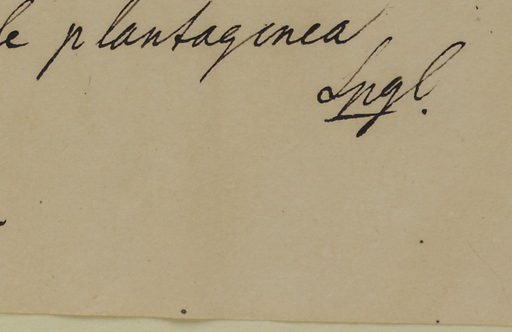 le plantaginea
Spgl.